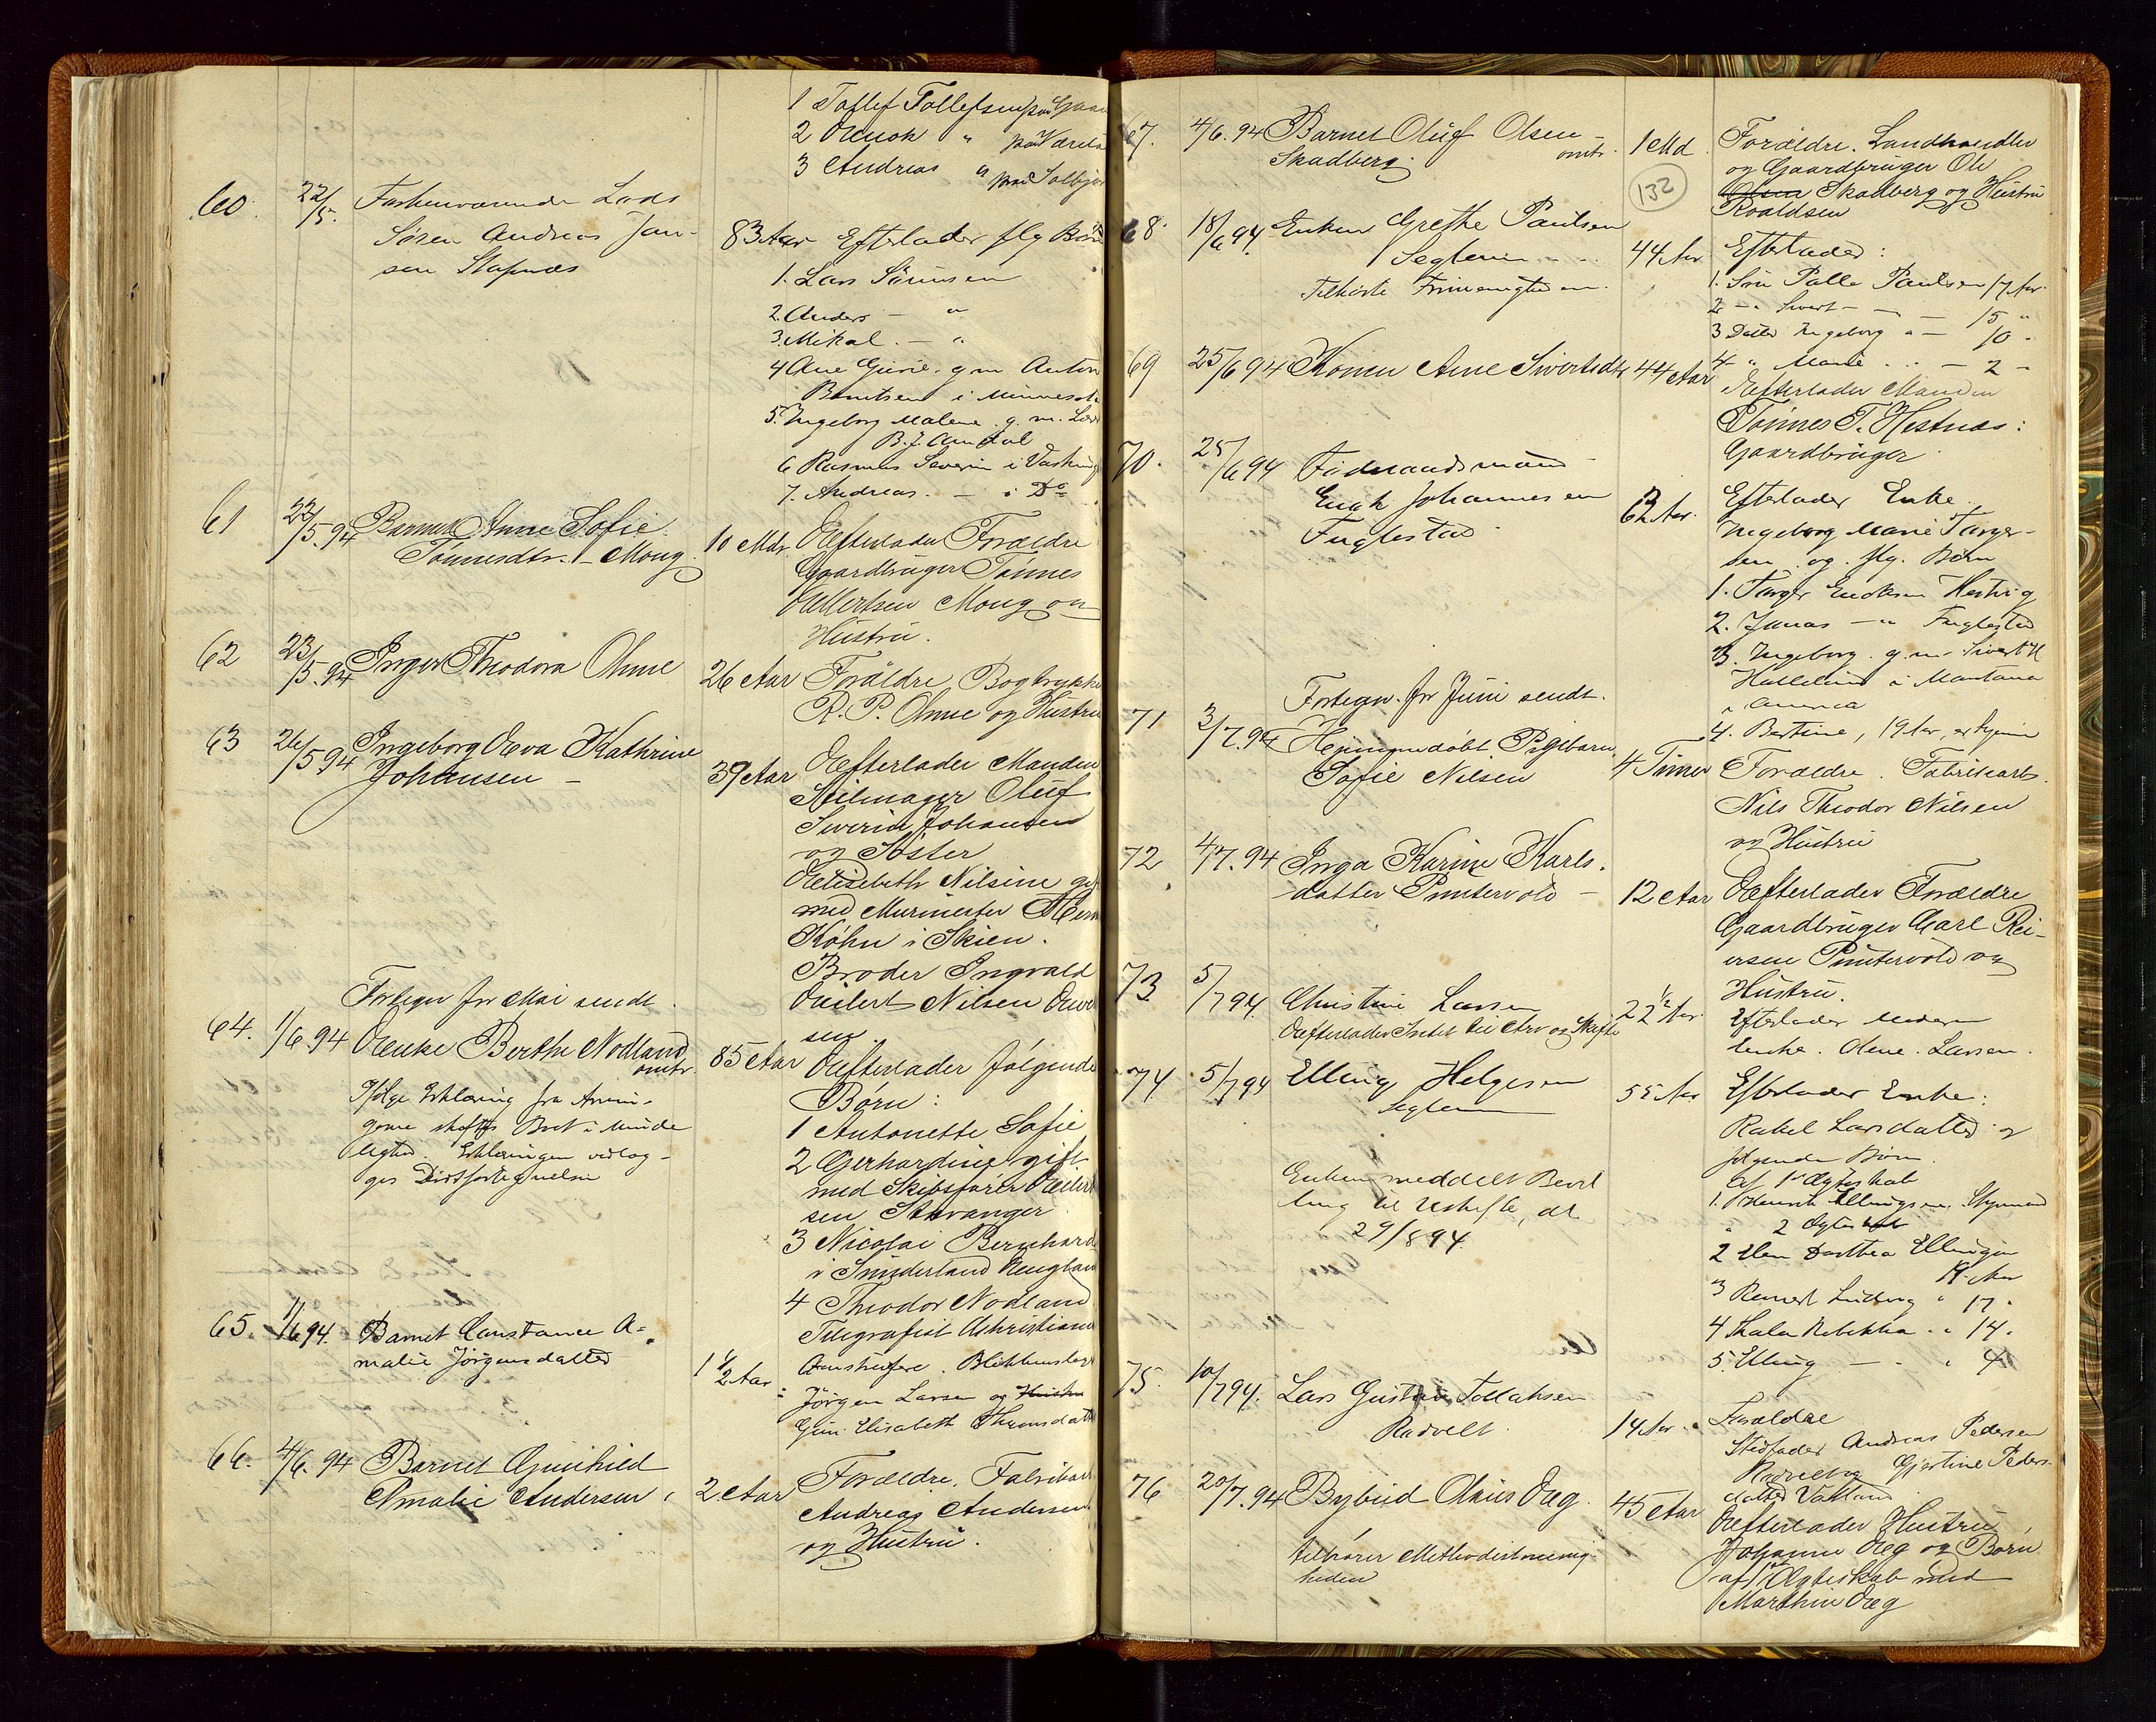 1 Tollef Tollefsen paa
2 Enok "
3 Andreas "
60. 22/5. Forhenværende Lods
Søren Andreas Jan-
sen Stapnæs
83 Aar Efterlader flg Børn
1. Lars Sørensen
2. Anders — "
3. Mikal. — "
4 Ane Gurie. gm Anton
Berntsen i Minnesota
5. Ingeborg Malene. g. m.
B. J. Amdal
6 Rasmus Severin i
7. Andreas. — i Do
61 22/5.94 Barnet Anne Sofie
Tønnesdtr. — Mong
10 Mdr. Efterlader Forældre
Gaardbruger Tønnes
Ellertsen Mong og
Hustru.
62 23/5.94 Inger Theodora Ohme
26 Aar Forældre Bogtrykker
R. P. Ohme og Hustru
63 26/5.94 Ingeborg Eva Kathrine
Johansen —
39 Aar Efterlader Manden
Seilmager Oluf
Severin Johansen
og Søster
Elisebeth Nilsine
med Murmester
Køhn i Skien.
Broder Ingvald
Eilert Nilsen
sen
Fortegn for Mai sendt.
64. 1/6.94 Enke Berthe Nodland
omtr 85 Aar Efterlader følgende
Børn:
Ifølge Erklæring fra Arvin-
gerne skiftes Boet i Minde
lighed. Erklæringen vedlæg-
ges Dødsfortegnelsen
1 Antonette Sofie
2 Gerhardine gift
med Skibsfører
sen Stavanger
3 Nicolai Bernhard
i Sunderland England
4 Theodor Nodland
Telegrafist
65. 1/6 94. Barnet Constance A-
malie Jørgensdatter
1 1/2 Aar Blikkenslager
Jørgen Larsen og Hustru
Gun. Elisabeth
66. 4/6. 94 Barnet Gunhild
Amalie Andersen
2 Aar Forældre. Fabrikarb
Andreas Andersen
og Hustru.
67. 4/6. 94 Barnet Oluf Olsen —
Skadberg. omtr. 1 Md
132
Forældre. Landhandler
og Gaardbruger Ole
Olsen Skadberg og Hustru
Roaldsen
68. 18/6 94. Enken Grethe Paulsen
Seglem
Tilhørte Frimenigheden.
44 Aar Efterlader:
1. Søn Palle Paulsen 17 Aar
2 — " Sivert — 15 "
3 Datter Ingeborg " — 10 "
4 " Marie — 2 —
69 25/6 94 Konen Ane Sivertsdtr 44 Aar
Efterlader Manden
Tønnes T. Hestnæs:
Gaardbruger
70. 25/6 94 Føderaadsmand
Enok Johannesen
Fuglestad
62 Aar. Efterlader Enke
Ingeborg Marie Targer-
sen og flg. Børn
1. Targer Enoksen Hestvig
2. Jonas — " Fuglestad
3. Ingeborg. g. m. Sivert H
i Montana
i America
4. Bertine, 19 Aar, er hjemme
Fortegn. for Juni sendt.
71 3/7.94 Hjemmedøbt Pigebarn
Sofie Nilsen
4 Timer Forældre. Fabrikarb.
Nils Theodor Nilsen
og Hustru
72 4/7.94 Inga Karine Karls-
datter Puntervold —
12 Aar Efterlader Forældre
Gaardbruger Carl Rei-
ersen Puntervold og
Hustru.
73 5/7 94 Christine Larsen
Efterlader Intet til Arv og Skifte
22 1/2 Aar. Efterlader Moderen
Enke. Olene. Larsen.
74 5/7 94 Elling Helgesen
Seglem
55 Aar Efterlader Enke:
Rakel Larsdatter og
følgende Børn
Af 1ste Ægteskab
1. Henrik Ellingsen. Styrmand
" 2 Ægteskab
2 Elen Dorthea Ellingsen
19 Aar
3 Reinert Ludvig " 17 "
4 Thala Rebekka " 14.
5. Elling — " 4
Enken meddelt Bevil
ling til Uskifte, dt
29/8 94.
75. 10/7 94. Lars Gustav Tollaksen
Rødvelt.
14 Aar. Forældre
Stedfader Andreas Pedersen
Gjertine Peders-
datter
76 20/7.94 Bybud Olaus Eeg.
tilhører Methodistmenig-
heden
45 Aar Efterlader Hustru
Johanne Eeg og Børn
af 1ste Ægteskab med
Marthine Eeg